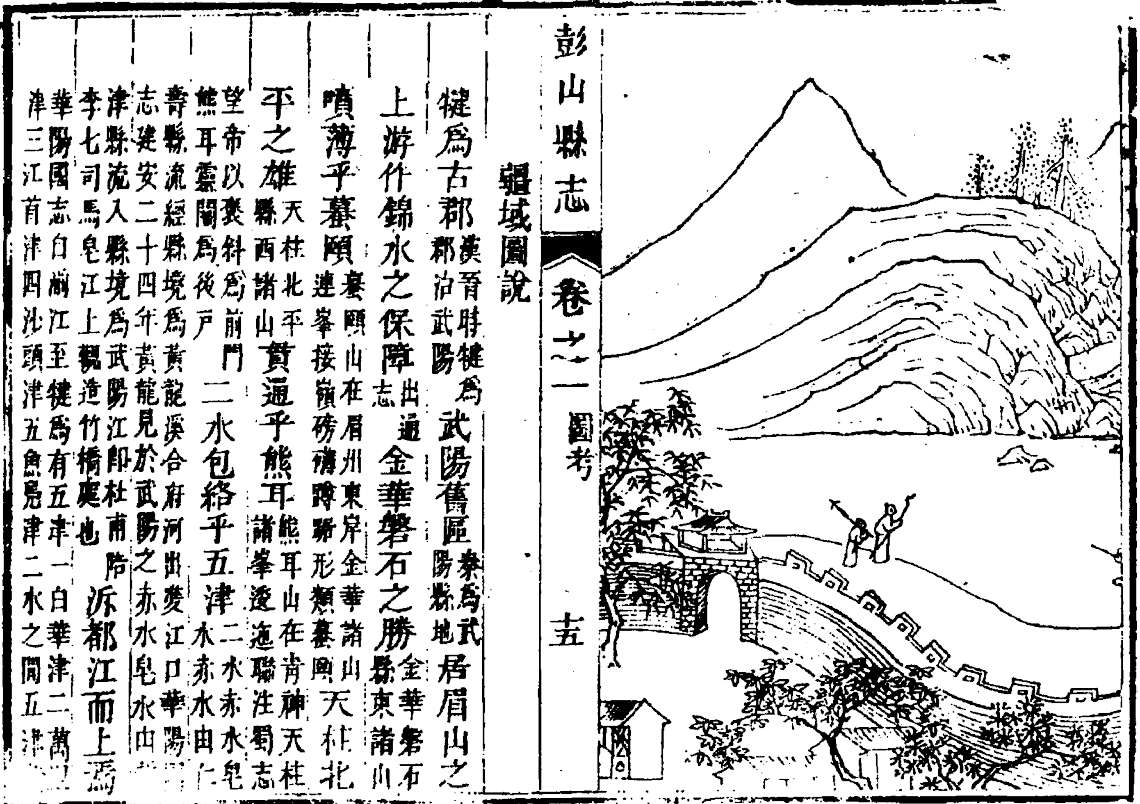 彭山縣志 卷之一 圖考 十五
疆域圖說
犍爲古郡漢晉時犍爲郡治武陽武陽舊區秦爲武陽縣地居眉山之
上游作錦水之保障出通志金華磐石之勝金華磐石縣東諸山
噴薄乎蟇頤蟇頤山在眉州東岸金華諸山連峯接嶺磅礴蹲踞形類蟇頤天柱北
平之雄天柱北平縣西諸山貫通乎熊耳熊耳山在青神天柱諸峯逶迤聯注蜀志
望帝以褒斜爲前門熊耳靈關爲後戶二水包絡乎五津二水赤水皂水赤水由仁
壽縣流經縣境爲黃龍溪合府河出雙江口華陽
志建安二十四年黃龍見於武陽之赤水皂水由
津縣流入縣境爲武陽江即杜甫陪李七司馬皂江上觀造竹橋處也泝都江而上焉
華陽國志自湔江至犍爲有五津一白華津二萬
津三江首津四沙頭津五魚鳧津二水之間五津